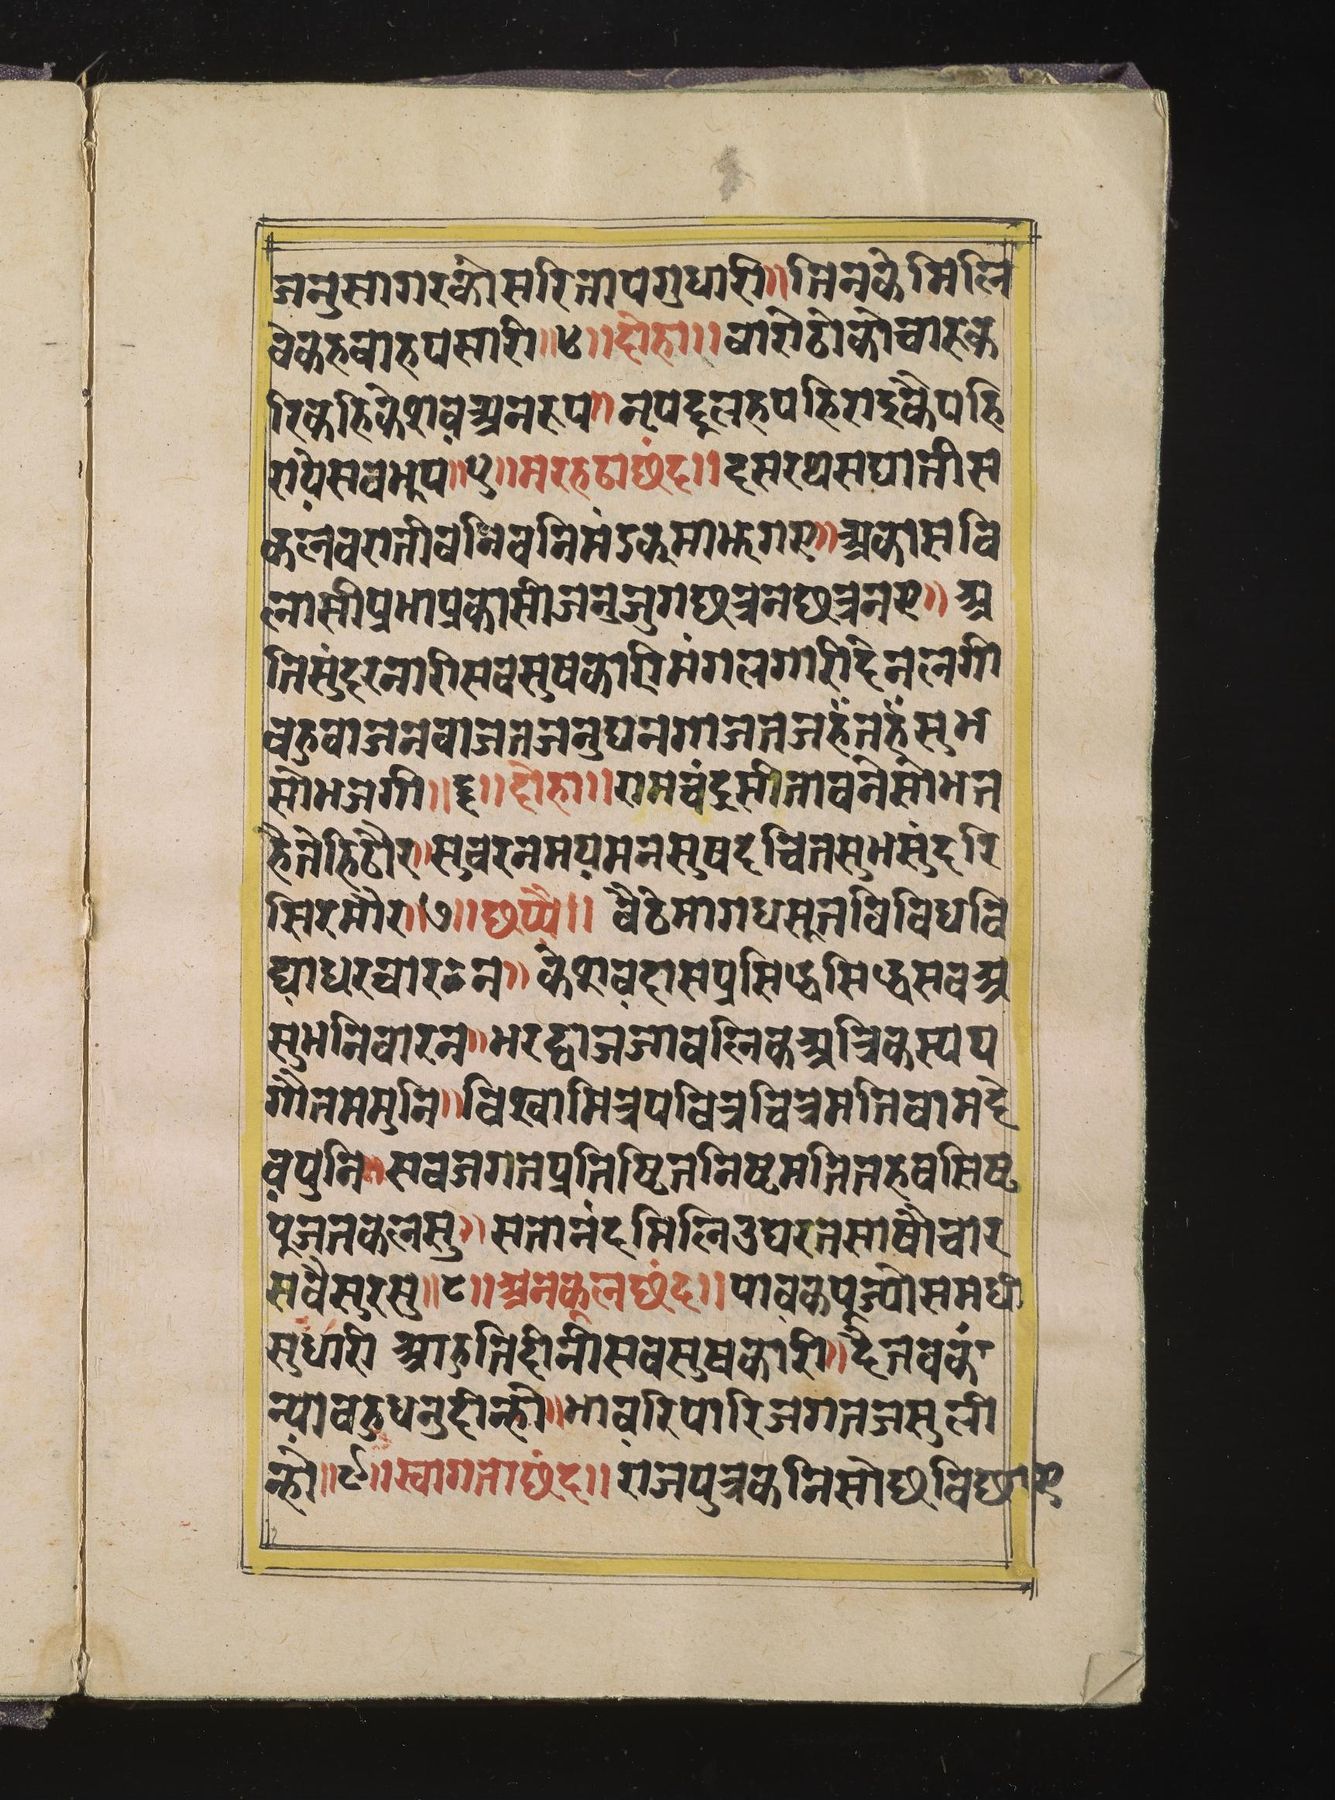 जनुसागरकौंसरितापगुधारी॥तिनकेमिलि
वेकहवाहपसारी॥४॥दोहा॥वारोठोकोचारुक
रिकहिकेशवअनरूप॥नृपदूलहपहिराइकैपहि
रायेसवभूप॥५॥मरहटाछंद॥दसरथसघातीस
कलवरातीवनिवनिमंडफमाझगए॥अकासवि
लासीप्रभाप्रकासीजनुजुगछत्रनछत्रनए॥अ
तिसुंदरनारीसवसुषकारीमंगलगारीदेनलगी
वहुवाजनवाजतजनुघनगाजतजहँतहँसुभ
सोभजगी॥६॥दोहा॥रामचंद्रसीतावनेसोभत
हैतेहिठौर॥सुवरनमयमनसुषदचितसुभसुंदरि
सिरमौर॥७॥छप्पै॥वैठेमागधसूतविविधवि
द्याधरचारन॥केशवदासप्रसिद्धसिद्धसवअ
सुभनिवारन॥भरद्वाजजावलिकअत्रिकस्यप
गौतममुनि॥विश्वामित्रपवित्रचित्रमतिवामदे
वपुनि॥सवजगतप्रतिष्टितनिष्टमतितहवसिष्ट
पूजतकलसु॥सतानंदमिलिउघरतसाषौचार
सवैसुरसु॥८॥अनकूलछंद॥पावकपूज्योसमधी
सुधारी आहुतिदीनीसवसुषकारी॥दैतवकं
न्यावहुधनुदीन्हौ॥भावरिपारिजगतजसुली
न्हौ॥९॥स्वागताछंद॥राजपुत्रकनिसोछविछाए